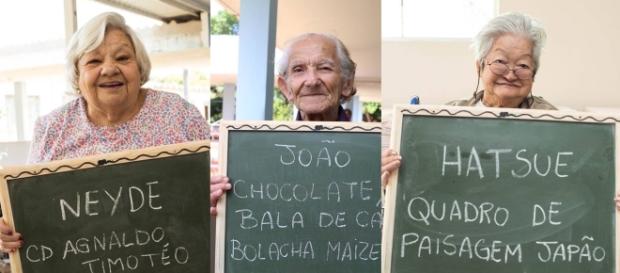 NEYDE
CD AGNALDO
TIMOTÉO
JOÃO
CHOCOLATE,
BALA DE CA
BOLACHA MAIZE
HATSUE
QUADRO DE
PAISAGEM JAPÃO